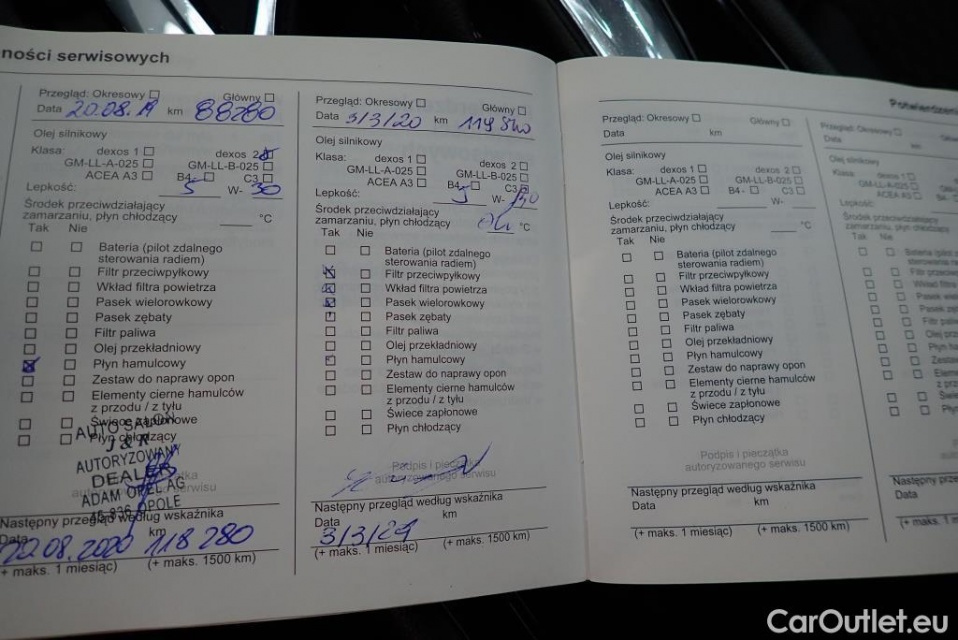 ności serwisowych
Przegląd: Okresowy Główny
Data 20.08.19 km 88280
Olej silnikowy
Klasa: dexos 1 dexos 2
GM-LL-A-025 GM-LL-B-025
ACEA A3 B4- C3
Lepkość: 5 W- 30
Środek przeciwdziałający
zamarzaniu, płyn chłodzący °C
Tak Nie
Bateria (pilot zdalnego
sterowania radiem)
Filtr przeciwpyłkowy
Wkład filtra powietrza
Pasek wielorowkowy
Pasek zębaty
Filtr paliwa
Olej przekładniowy
Płyn hamulcowy
Zestaw do naprawy opon
Elementy cierne hamulców
z przodu / z tyłu
Świece zapłonowe
Płyn chłodzący
AUTO SALON
J & R
AUTORYZOWANY
DEALER
ADAM OPEL AG
OPOLE
Następny przegląd według wskaźnika
Data km
20.08.2020 118 280
(+ maks. 1 miesiąc) (+ maks. 1500 km)
Przegląd: Okresowy Główny
Data 3/3/20 km
Olej silnikowy
Klasa: dexos 1 dexos 2
GM-LL-A-025 GM-LL-B-025
ACEA A3 B4- C3
Lepkość: 5 W- 30
Środek przeciwdziałający
zamarzaniu, płyn chłodzący °C
Tak Nie
Bateria (pilot zdalnego
sterowania radiem)
Filtr przeciwpyłkowy
Wkład filtra powietrza
Pasek wielorowkowy
Pasek zębaty
Filtr paliwa
Olej przekładniowy
Płyn hamulcowy
Zestaw do naprawy opon
Elementy cierne hamulców
z przodu / z tyłu
Świece zapłonowe
Płyn chłodzący
Podpis i pieczątka
autoryzowanego serwisu
Następny przegląd według wskaźnika
Data km
3/3/21
(+ maks. 1 miesiąc) (+ maks. 1500 km)
Przegląd: Okresowy Główny
Data km
Olej silnikowy
Klasa: dexos 1 dexos 2
GM-LL-A-025 GM-LL-B-025
ACEA A3 B4- C3
Lepkość: W-
Środek przeciwdziałający
zamarzaniu, płyn chłodzący °C
Tak Nie
Bateria (pilot zdalnego
sterowania radiem)
Filtr przeciwpyłkowy
Wkład filtra powietrza
Pasek wielorowkowy
Pasek zębaty
Filtr paliwa
Olej przekładniowy
Płyn hamulcowy
Zestaw do naprawy opon
Elementy cierne hamulców
z przodu / z tyłu
Świece zapłonowe
Płyn chłodzący
Podpis i pieczątka
autoryzowanego serwisu
Następny przegląd według wskaźnika
Data km
(+ maks. 1 miesiąc) (+ maks. 1500 km)
Przegląd: Okresowy
Data km
Olej silnikowy
Klasa: dexos 1
GM-LL-A-025
ACEA A3
Lepkość:
Środek przeciwdziałający
zamarzaniu, płyn chłodzący
Tak Nie
CarOutlet.eu